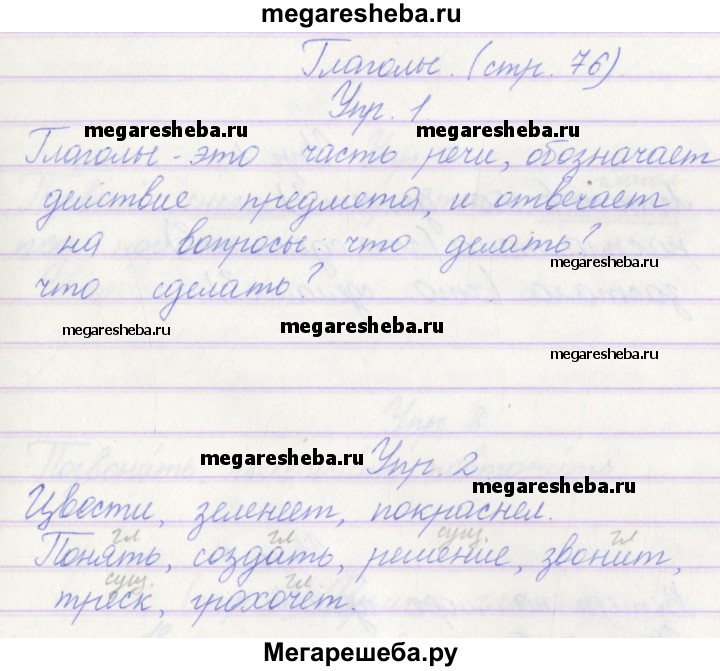 megaresheba.ru
Глаголы. (стр. 76)
Упр. 1.
megaresheba.ru megaresheba.ru
Глаголы - это часть речи, обозначает
действие предмета, и отвечает
на вопросы: что делать?
megaresheba.ru
что сделать?
megaresheba.ru megaresheba.ru
megaresheba.ru
megaresheba.ru Упр. 2
megaresheba.ru
Цвести, зеленеет, покраснел.
гл гл. сущ. гл
Понять, создать, решение, звонит,
сущ. гл.
треск, грохочет.
Мегарешеба.ру